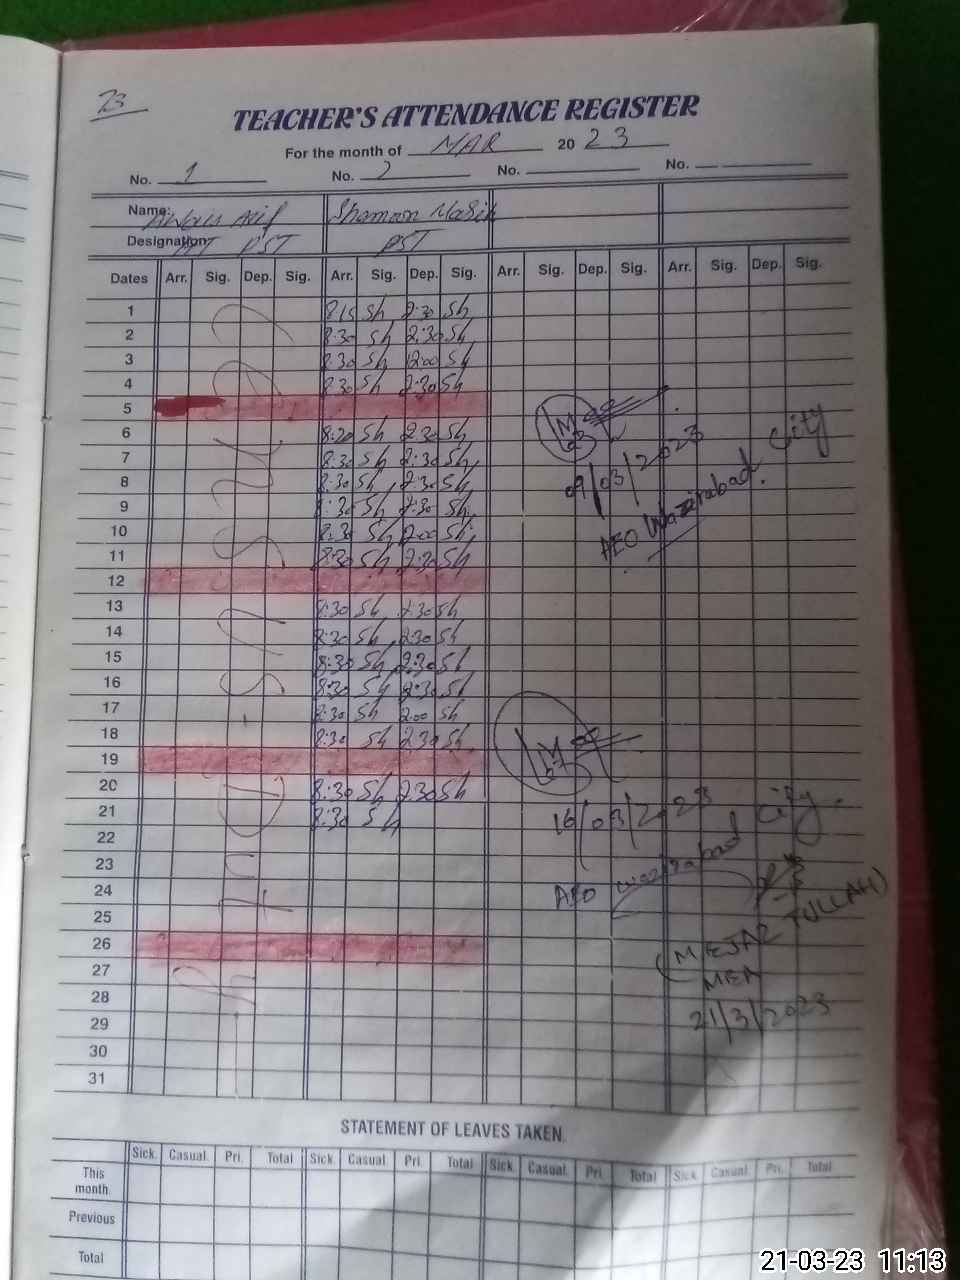 73
TEACHER'S ATTENDANCE REGISTER
For the month of MAR 2023
No. 1 No. 2 No. No.
Name: Awais Arif Shamoon Masih
Designation: PST PST
Dates Arr. Sig. Dep. Sig. Arr. Sig. Dep. Sig. Arr. Sig. Dep. Sig. Arr. Sig. Dep. Sig.
1 8:15 Sh 2:30 Sh
2 8:30 Sh 2:30 Sh
3 8:30 Sh 12:00 Sh
4 8:30 Sh 2:30 Sh
5
6 8:20 Sh 2:30 Sh
7 8:30 Sh 2:30 Sh
8 8:30 Sh 2:30 Sh
9 8:30 Sh 2:30 Sh
10 8:30 Sh 2:00 Sh
11 8:30 Sh 2:30 Sh
12
13 8:30 Sh 2:30 Sh
14 8:30 Sh 2:30 Sh
15 8:30 Sh 2:30 Sh
16 8:30 Sh 2:30 Sh
17 8:30 Sh 2:00 Sh
18 8:30 Sh 2:30 Sh
19
20 8:30 Sh 2:30 Sh
21 8:30 Sh
22
23
24
25
26
27
28
29
30
31
09/03/2023
AEO Wazirabad City
16/03/2023
AEO Wazirabad City.
MEA
21/3/2023
STATEMENT OF LEAVES TAKEN.
Sick. Casual. Pri. Total Sick. Casual. Pri. Total Sick. Casual. Pri. Total Sick. Casual. Pri. Total
This month.
Previous
Total
21-03-23 11:13